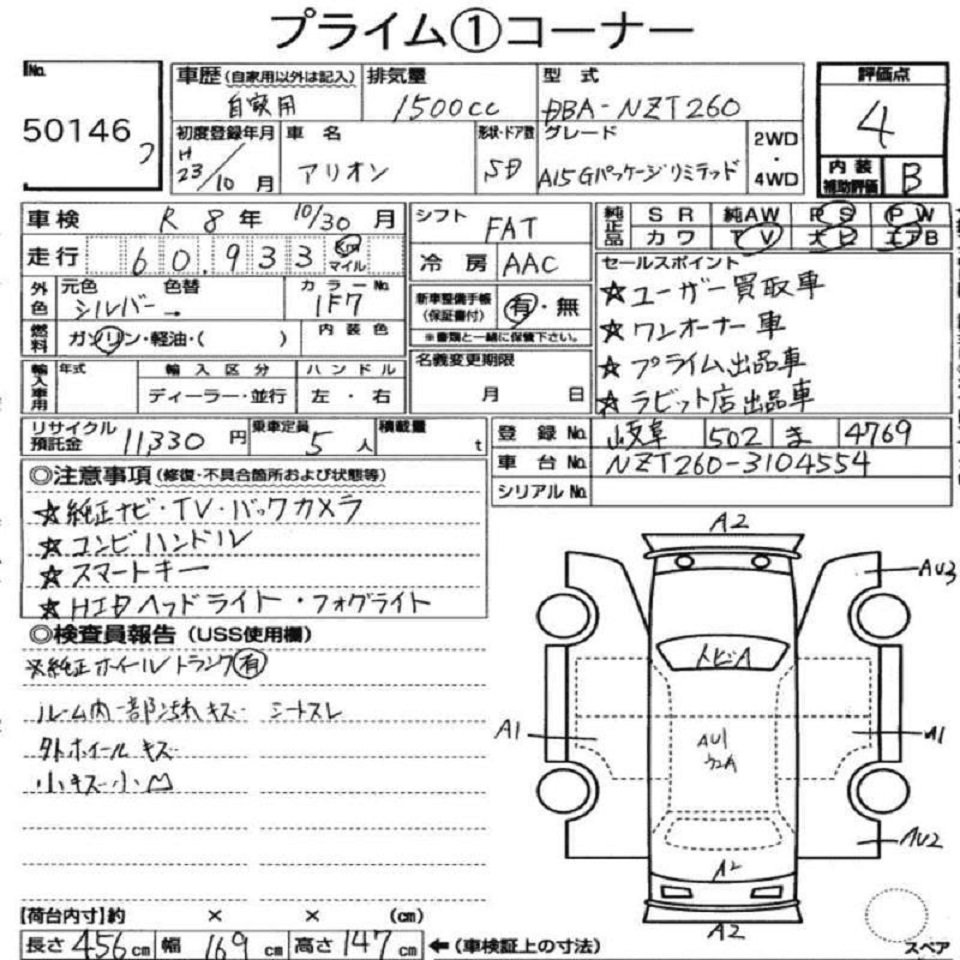 プライム①コーナー
No. 50146 フ
車歴 (自家用以外は記入) 自家用
排気量 1500cc
型式 DBA-NZT260
評価点 4
内装補助評価 B
初度登録年月 H 23/10 月
車名 アリオン
形状・ドア数 SD
グレード A15 Gパッケージリミテッド
2WD・4WD
車検 R 8年 10/30 月
走行 60.933 Km マイル
外色 元色 シルバー→ 色替
カラーNo. 1F7
燃料 ガソリン・軽油・( )
内装色
輸入車用 年式 輸入区分 ディーラー・並行 ハンドル 左・右
シフト FAT
冷房 AAC
新車整備手帳 (保証書付) 有・無
※書類と一緒に保管下さい。
名義変更期限 月 日
純正品 SR 純AW PS PW
カワ TV エアB
セールスポイント
☆ユーザー買取車
☆ワンオーナー車
☆プライム出品車
☆ラビット店出品車
リサイクル預託金 11,330 円
乗車定員 5 人
積載量 t
登録No. 岐阜 502 ま 4769
車台No. NZT260-3104554
シリアルNo.
◎注意事項 (修復・不具合箇所および状態等)
☆純正ナビ・TV・バックカメラ
☆コンビハンドル
☆スマートキー
☆HIDヘッドライト・フォグライト
◎検査員報告 (USS使用欄)
※純正ホイールトランク有
ルーム内一部汚れキズ シートスレ
外ホイールキズ
小キズ小凹
A2
AU3
トビA
A1
A1
AU1
AU2
A2
A2
スペア
【荷台内寸】約 × × (cm)
長さ 456 cm 幅 169 cm 高さ 147 cm ←(車検証上の寸法)